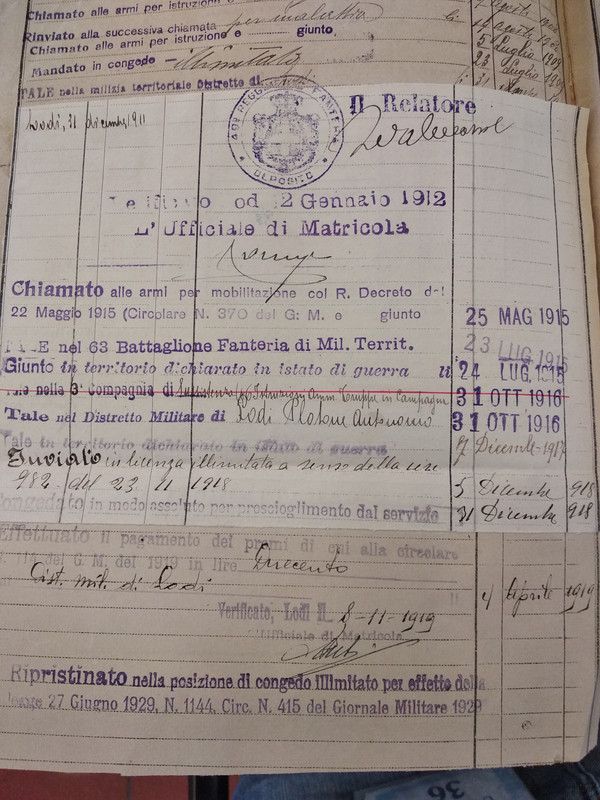 Chiamato alle armi per istruzione e
Rinviato alla successiva chiamata per malattia li
Chiamato alle armi per istruzione e giunto 5 Luglio 1909
Mandato in congedo illimitato 23 Luglio
TALE nella milizia territoriale Distretto di li 31
Lodi, 31 dicembre 1911
DEPOSITO
Il Relatore
od 12 Gennaio 1912
L'Ufficiale di Matricola
Chiamato alle armi per mobilitazione col R. Decreto del
22 Maggio 1915 (Circolare N. 370 del G. M. e giunto 25 MAG 1915
TALE nel 63 Battaglione Fanteria di Mil. Territ. 23 LUG 1915
Giunto in territorio dichiarato in istato di guerra li 24 LUG. 1915
Tale nella 3ª Compagnia di Sussistenza in Campagna 31 OTT 1916
Tale nel Distretto Militare di Lodi Plotone Autonomo 31 OTT 1916
Tale in territorio dichiarato in istato di guerra Dicembre 1917
Inviato in licenza illimitata a senso della circ
982 del 23 11 1918 5 Dicembre 918
Congedato in modo assoluto per proscioglimento dal servizio 31 Dicembre 918
Effettuato il pagamento dei premi di cui alla circolare
114 del G. M. del 1919 in lire Duecento
Dist. mil. di Lodi li 4 Aprile 1919
Verificato, Lodi li 8-11-1919
L'Ufficiale di Matricola
Ripristinato nella posizione di congedo illimitato per effetto della
legge 27 Giugno 1929, N. 1144, Circ. N. 415 del Giornale Militare 1929
36